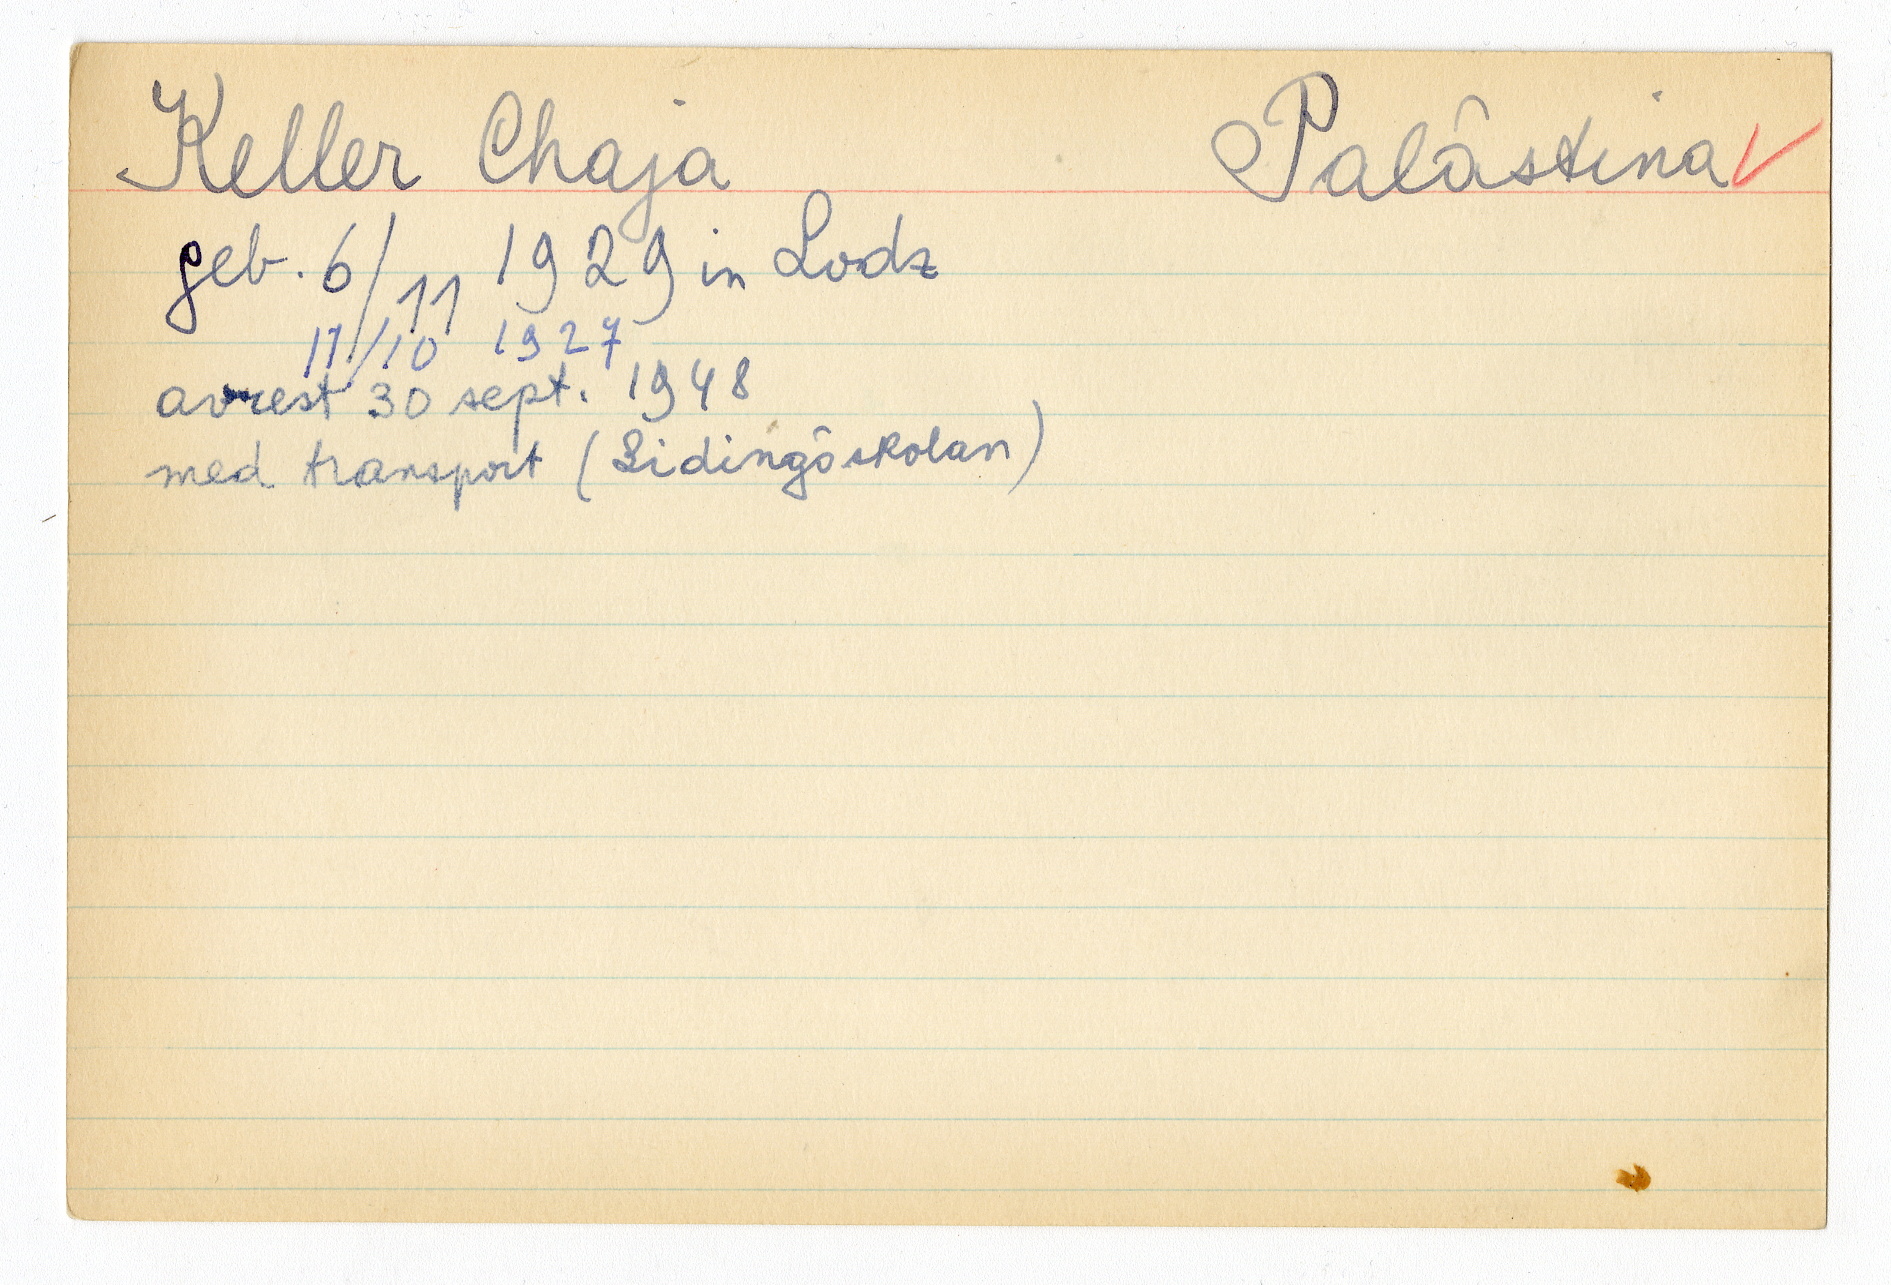 Keller Chaja Palästina ✓
geb. 6/11 1929 in Lodz
11/10 1927
avrest 30 sept. 1948
med transport (Lidingöskolan)